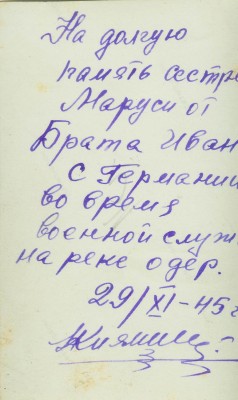 На долгую
память сестре
Маруси от
Брата Иван
с Германии
во время
военной служ
на реке одер.
29/XI-45г